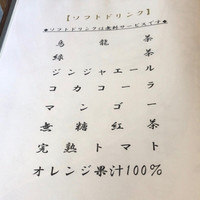 【ソフトドリンク】
◆ソフトドリンクは無料サービスです◆
烏龍茶
緑茶
ジンジャエール
コカコーラ
マンゴー
無糖紅茶
完熟トマト
オレンジ果汁100%